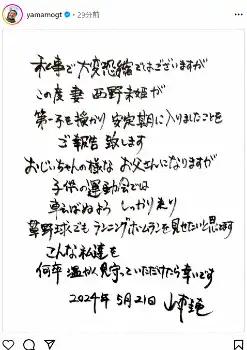 yamamogt・29分前
私事で大変恐縮ではございますが
この度 妻 西野未姫が
第一子を授かり 安定期に入りましたことを
ご報告致します
おじいちゃんの様な お父さんになりますが
子供の運動会では
転ばぬよう しっかり走り
草野球でも ランニングホームランを見せたいと思います
こんな私達を
何卒 温かく見守っていただけたら幸いです
2024年 5月21日